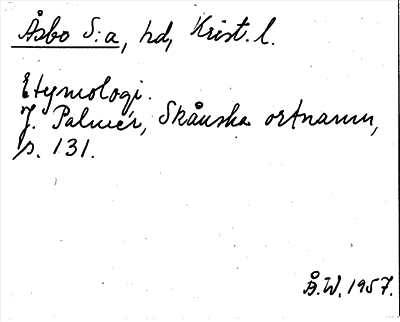 Åsbo S:a, hd, Krist. l.
Etymologi.
J. Palmér, Skånska ortnamn,
s. 131.
Å.W. 1957.